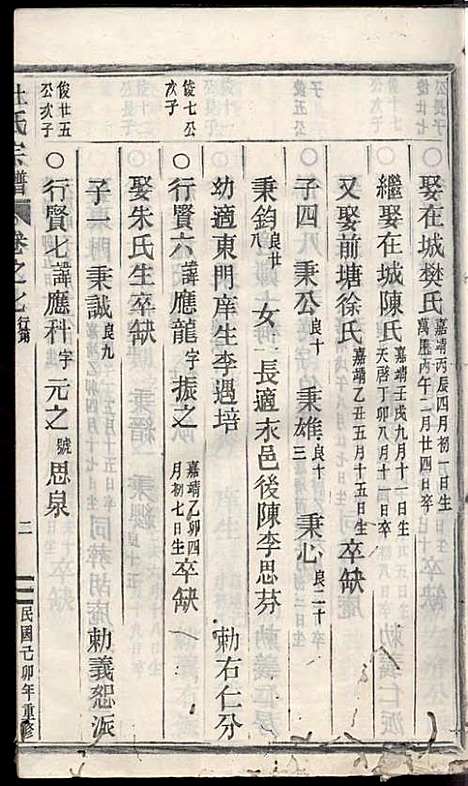 娶在城樊氏嘉靖丙辰四月初一日生萬歷丙午二月廿四日卒
繼娶在城陳氏嘉靖壬戌九月十一日生天啓丁卯八月十一日卒
又娶前塘徐氏嘉靖乙丑五月十五日生卒缺
子四秉公良十秉雄良十三秉心良二十
秉鈞良廿八女二長適永邑後陳李思芬
幼適東門庠生李遇培勅右仁分
俊七公次子
○行賢六諱應龍字振之嘉靖乙卯四月初七日生卒缺
娶朱氏生卒缺
子一秉誠良九勅義恕派
俊廿五公次子
○行賢七諱應科字元之號思泉
杜氏宗譜卷之七行第二民國己卯年重修